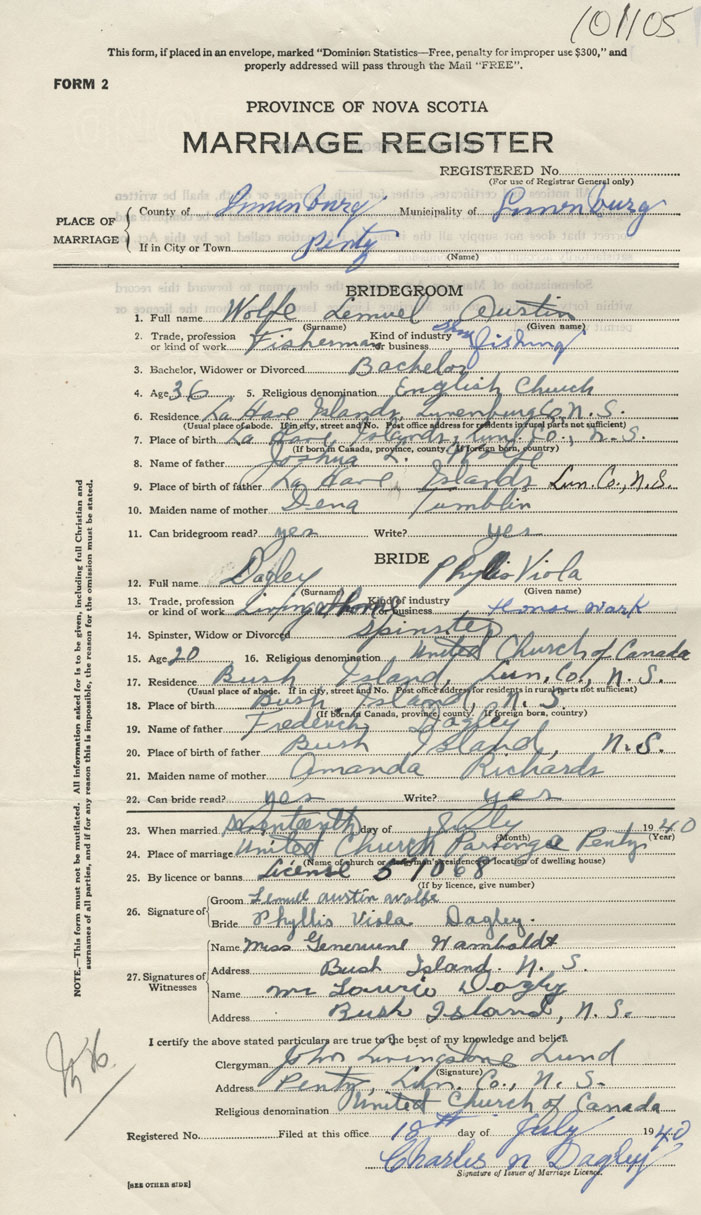 101105
This form, if placed in an envelope, marked "Dominion Statistics—Free, penalty for improper use $300," and
properly addressed will pass through the Mail "FREE".
FORM 2
PROVINCE OF NOVA SCOTIA
MARRIAGE REGISTER
REGISTERED No.
(For use of Registrar General only)
PLACE OF MARRIAGE
County of Lunenburg Municipality of Lunenburg
If in City or Town Pentz
(Name)
BRIDEGROOM
1. Full name Wolfe Lemuel Austin
(Surname) (Given name)
2. Trade, profession or kind of work Fisherman Kind of industry or business fishing
3. Bachelor, Widower or Divorced Bachelor
4. Age 36 5. Religious denomination English Church
6. Residence La Have Islands, Lunenburg Co. N. S.
(Usual place of abode. If in city, street and No. Post office address for residents in rural parts not sufficient)
7. Place of birth La Have Islands, Lun. Co., N. S.
(If born in Canada, province, county. If foreign born, country)
8. Name of father Joshua L. Wolfe
9. Place of birth of father La Have Islands Lun. Co., N. S.
10. Maiden name of mother Dena Tumblin
11. Can bridegroom read? yes Write? yes
BRIDE
12. Full name Dagley Phyllis Viola
(Surname) (Given name)
13. Trade, profession or kind of work Living at home Kind of industry or business House work
14. Spinster, Widow or Divorced Spinster
15. Age 20 16. Religious denomination United Church of Canada
17. Residence Bush Island, Lun. Co., N. S.
(Usual place of abode. If in city, street and No. Post office address for residents in rural parts not sufficient)
18. Place of birth Bush Island, N. S.
(If born in Canada, province, county. If foreign born, country)
19. Name of father Frederick Dagley
20. Place of birth of father Bush Island, N. S.
21. Maiden name of mother Amanda Richards
22. Can bride read? yes Write? yes
23. When married seventeenth day of July 1940
(Month) (Year)
24. Place of marriage United Church Parsonage Pentz
(Name of church or clergyman's residence or location of dwelling house)
25. By licence or banns License 57068
(If by licence, give number)
26. Signature of
Groom Lemuel Austin Wolfe
Bride Phyllis Viola Dagley.
27. Signatures of Witnesses
Name Miss Wamboldt
Address Bush Island. N. S.
Name Mr Laurie Dagley
Address Bush Island, N. S.
I certify the above stated particulars are true to the best of my knowledge and belief.
Clergyman John Livingstone Lund
(Signature)
Address Pentz, Lun. Co., N. S.
Religious denomination United Church of Canada
Registered No. Filed at this office 18th day of July 1940
Charles N Dagley
Signature of Issuer of Marriage Licence.
[SEE OTHER SIDE]
NOTE.—This form must not be mutilated. All information asked for is to be given, including full Christian and
surnames of all parties, and if for any reason this is impossible, the reason for the omission must be stated.